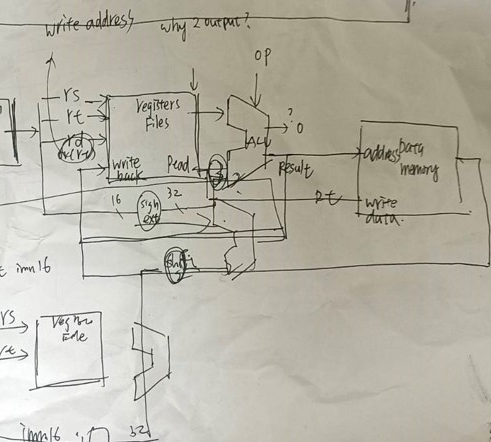 write address why 2 output?
OP
rs
rt
rd
Registers
Files
write
back
Read
ALU
?
0
Result
address
Data
memory
write
data
rt
16
sign
ext
32
imm16
rs
rt
32
imm16